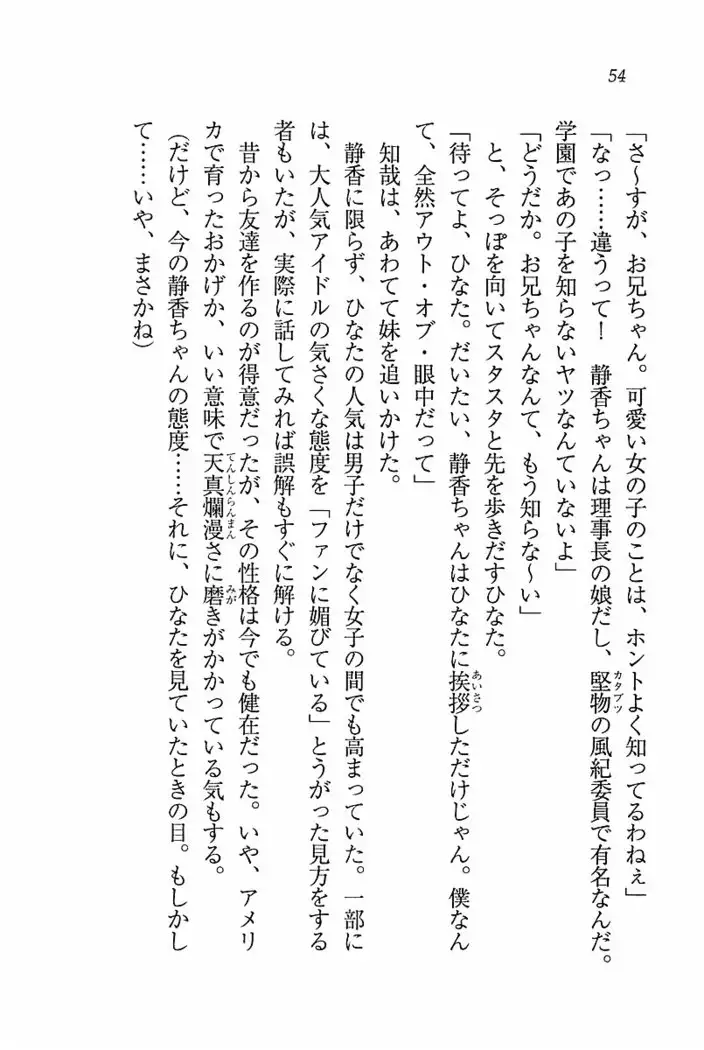 54
「さ～すが、お兄ちゃん。可愛い女の子のことは、ホントよく知ってるわねぇ」
「なっ……違うって！　静香ちゃんは理事長の娘だし、堅物の風紀委員で有名なんだ。
学園であの子を知らないヤツなんていないよ」
「どうだか。お兄ちゃんなんて、もう知らな～い」
　と、そっぽを向いてスタスタと先を歩きだすひなた。
「待ってよ、ひなた。だいたい、静香ちゃんはひなたに挨拶しただけじゃん。僕なん
て、全然アウト・オブ・眼中だって」
　知哉は、あわてて妹を追いかけた。
　静香に限らず、ひなたの人気は男子だけでなく女子の間でも高まっていた。一部に
は、大人気アイドルの気さくな態度を「ファンに媚びている」とうがった見方をする
者もいたが、実際に話してみれば誤解もすぐに解ける。
　昔から友達を作るのが得意だったが、その性格は今でも健在だった。いや、アメリ
カで育ったおかげか、いい意味で天真爛漫さに磨きがかかっている気もする。
（だけど、今の静香ちゃんの態度……それに、ひなたを見ていたときの目。もしかし
て……いや、まさかね）
カタブツ
あいさつ
てんしんらんまん
みが